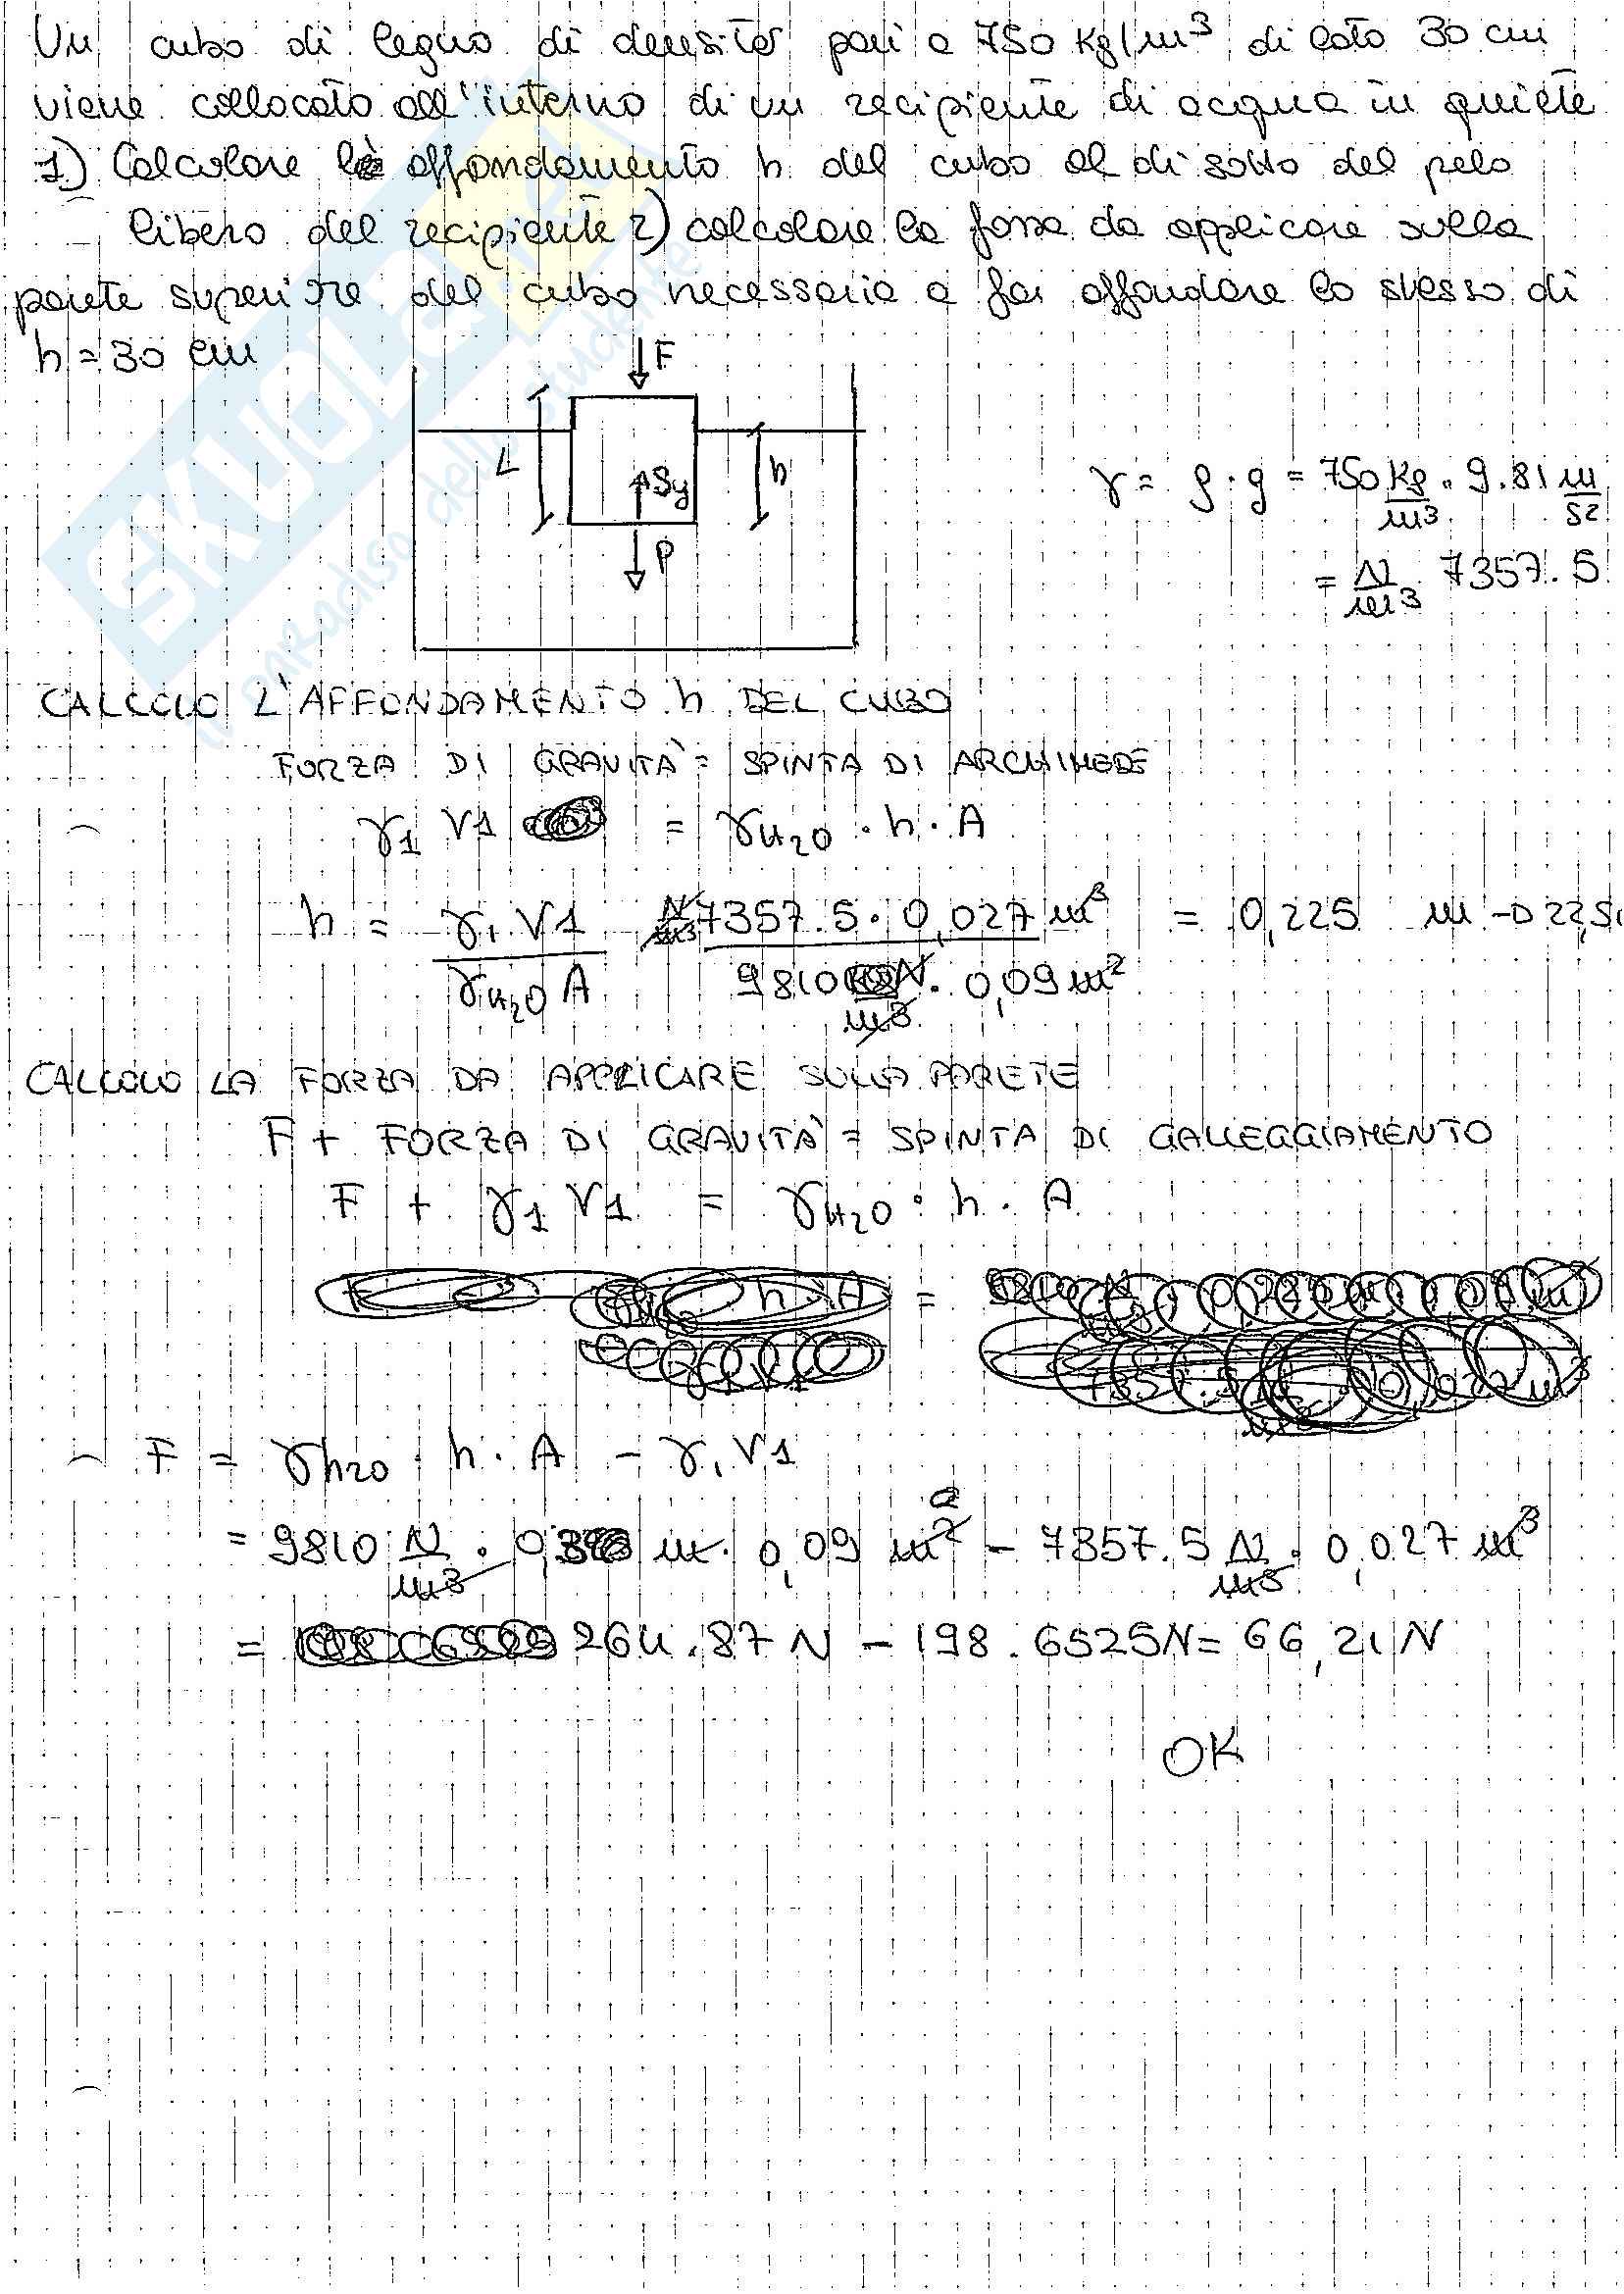 Un cubo di legno di densità pari a 750 Kg/m³ di lato 30 cm
viene collocato all'interno di un recipiente di acqua in quiete
1) Calcolare affondamento h del cubo al di sotto del pelo
libero del recipiente 2) calcolare la forza da applicare sulla
parete superiore del cubo necessaria a far affondare lo stesso di
h = 30 cm
F
L
Sy
h
P
γ = ρ · g = 750 Kg/m³ · 9.81 m/s²
= N/m³ 7357.5
SKUOLA.net
il paradiso dello studente
CALCOLO L'AFFONDAMENTO h DEL CUBO
FORZA DI GRAVITÀ = SPINTA DI ARCHIMEDE
γ1 V1 = γH2O · h · A
h = γ1 V1 / γH2O A N/m³ 7357.5 · 0,027 m³ / 9810 N/m³ · 0,09 m² = 0,225 m → 22,5
CALCOLO LA FORZA DA APPLICARE SULLA PARETE
F + FORZA DI GRAVITÀ = SPINTA DI GALLEGGIAMENTO
F + γ1 V1 = γH2O · h · A
F = γH2O · h · A - γ1 V1
= 9810 N/m³ · m · 0,09 m² - 7357.5 N/m³ · 0,027 m³
= 264.87 N - 198.6525 N = 66,21 N
OK